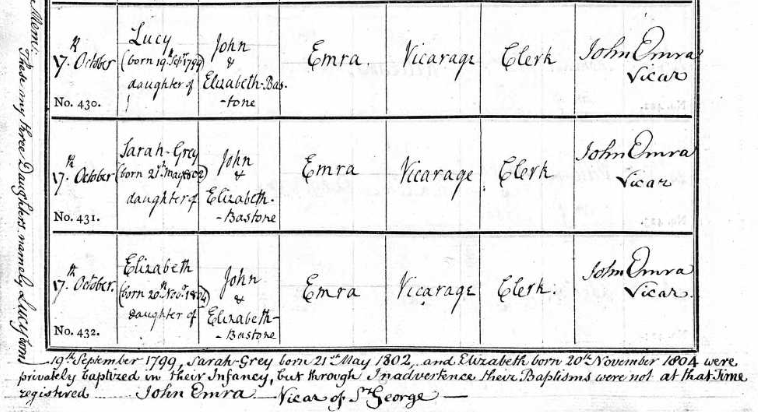 Mem: These my three Daughters, namely Lucy born
17th October
Lucy
(born 19th Sept 1799)
daughter of
John
&
Elizabeth-Bas-
tone
Emra.
Vicarage
Clerk
John Emra
Vicar
No. 430.
17th October
Sarah-Grey
(born 21st May 1802)
daughter of
John
&
Elizabeth-
Bastone
Emra
Vicarage
Clerk
John Emra
Vicar
No. 431.
17th October.
Elizabeth
(born 20th Novr 1804)
daughter of
John
&
Elizabeth-
Bastone
Emra
Vicarage
Clerk.
John Emra
Vicar.
No. 432.
19th September 1799, Sarah-Grey born 21st May 1802, and Elizabeth born 20th November 1804 were
privately baptized in their Infancy, but through Inadvertence their Baptisms were not at that Time
registered John Emra Vicar of St George